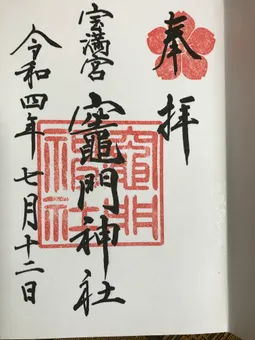 奉拝
宝満宮
竈門神社
令和四年七月十二日
竈門神社